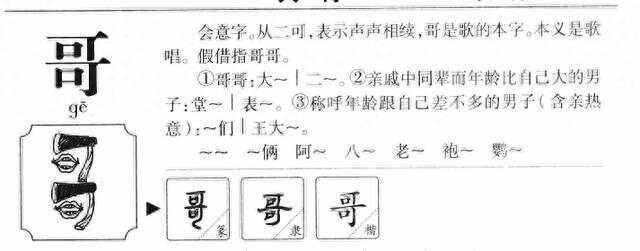 哥
gē
会意字。从二可，表示声声相续，哥是歌的本字。本义是歌
唱。假借指哥哥。
①哥哥：大～｜二～。②亲戚中同辈而年龄比自己大的男
子：堂～｜表～。③称呼年龄跟自己差不多的男子（含亲热
意）：～们｜王大～。
～～ ～俩 阿～ 八～ 老～ 袍～ 鹦～
哥 篆 哥 隶 哥 楷